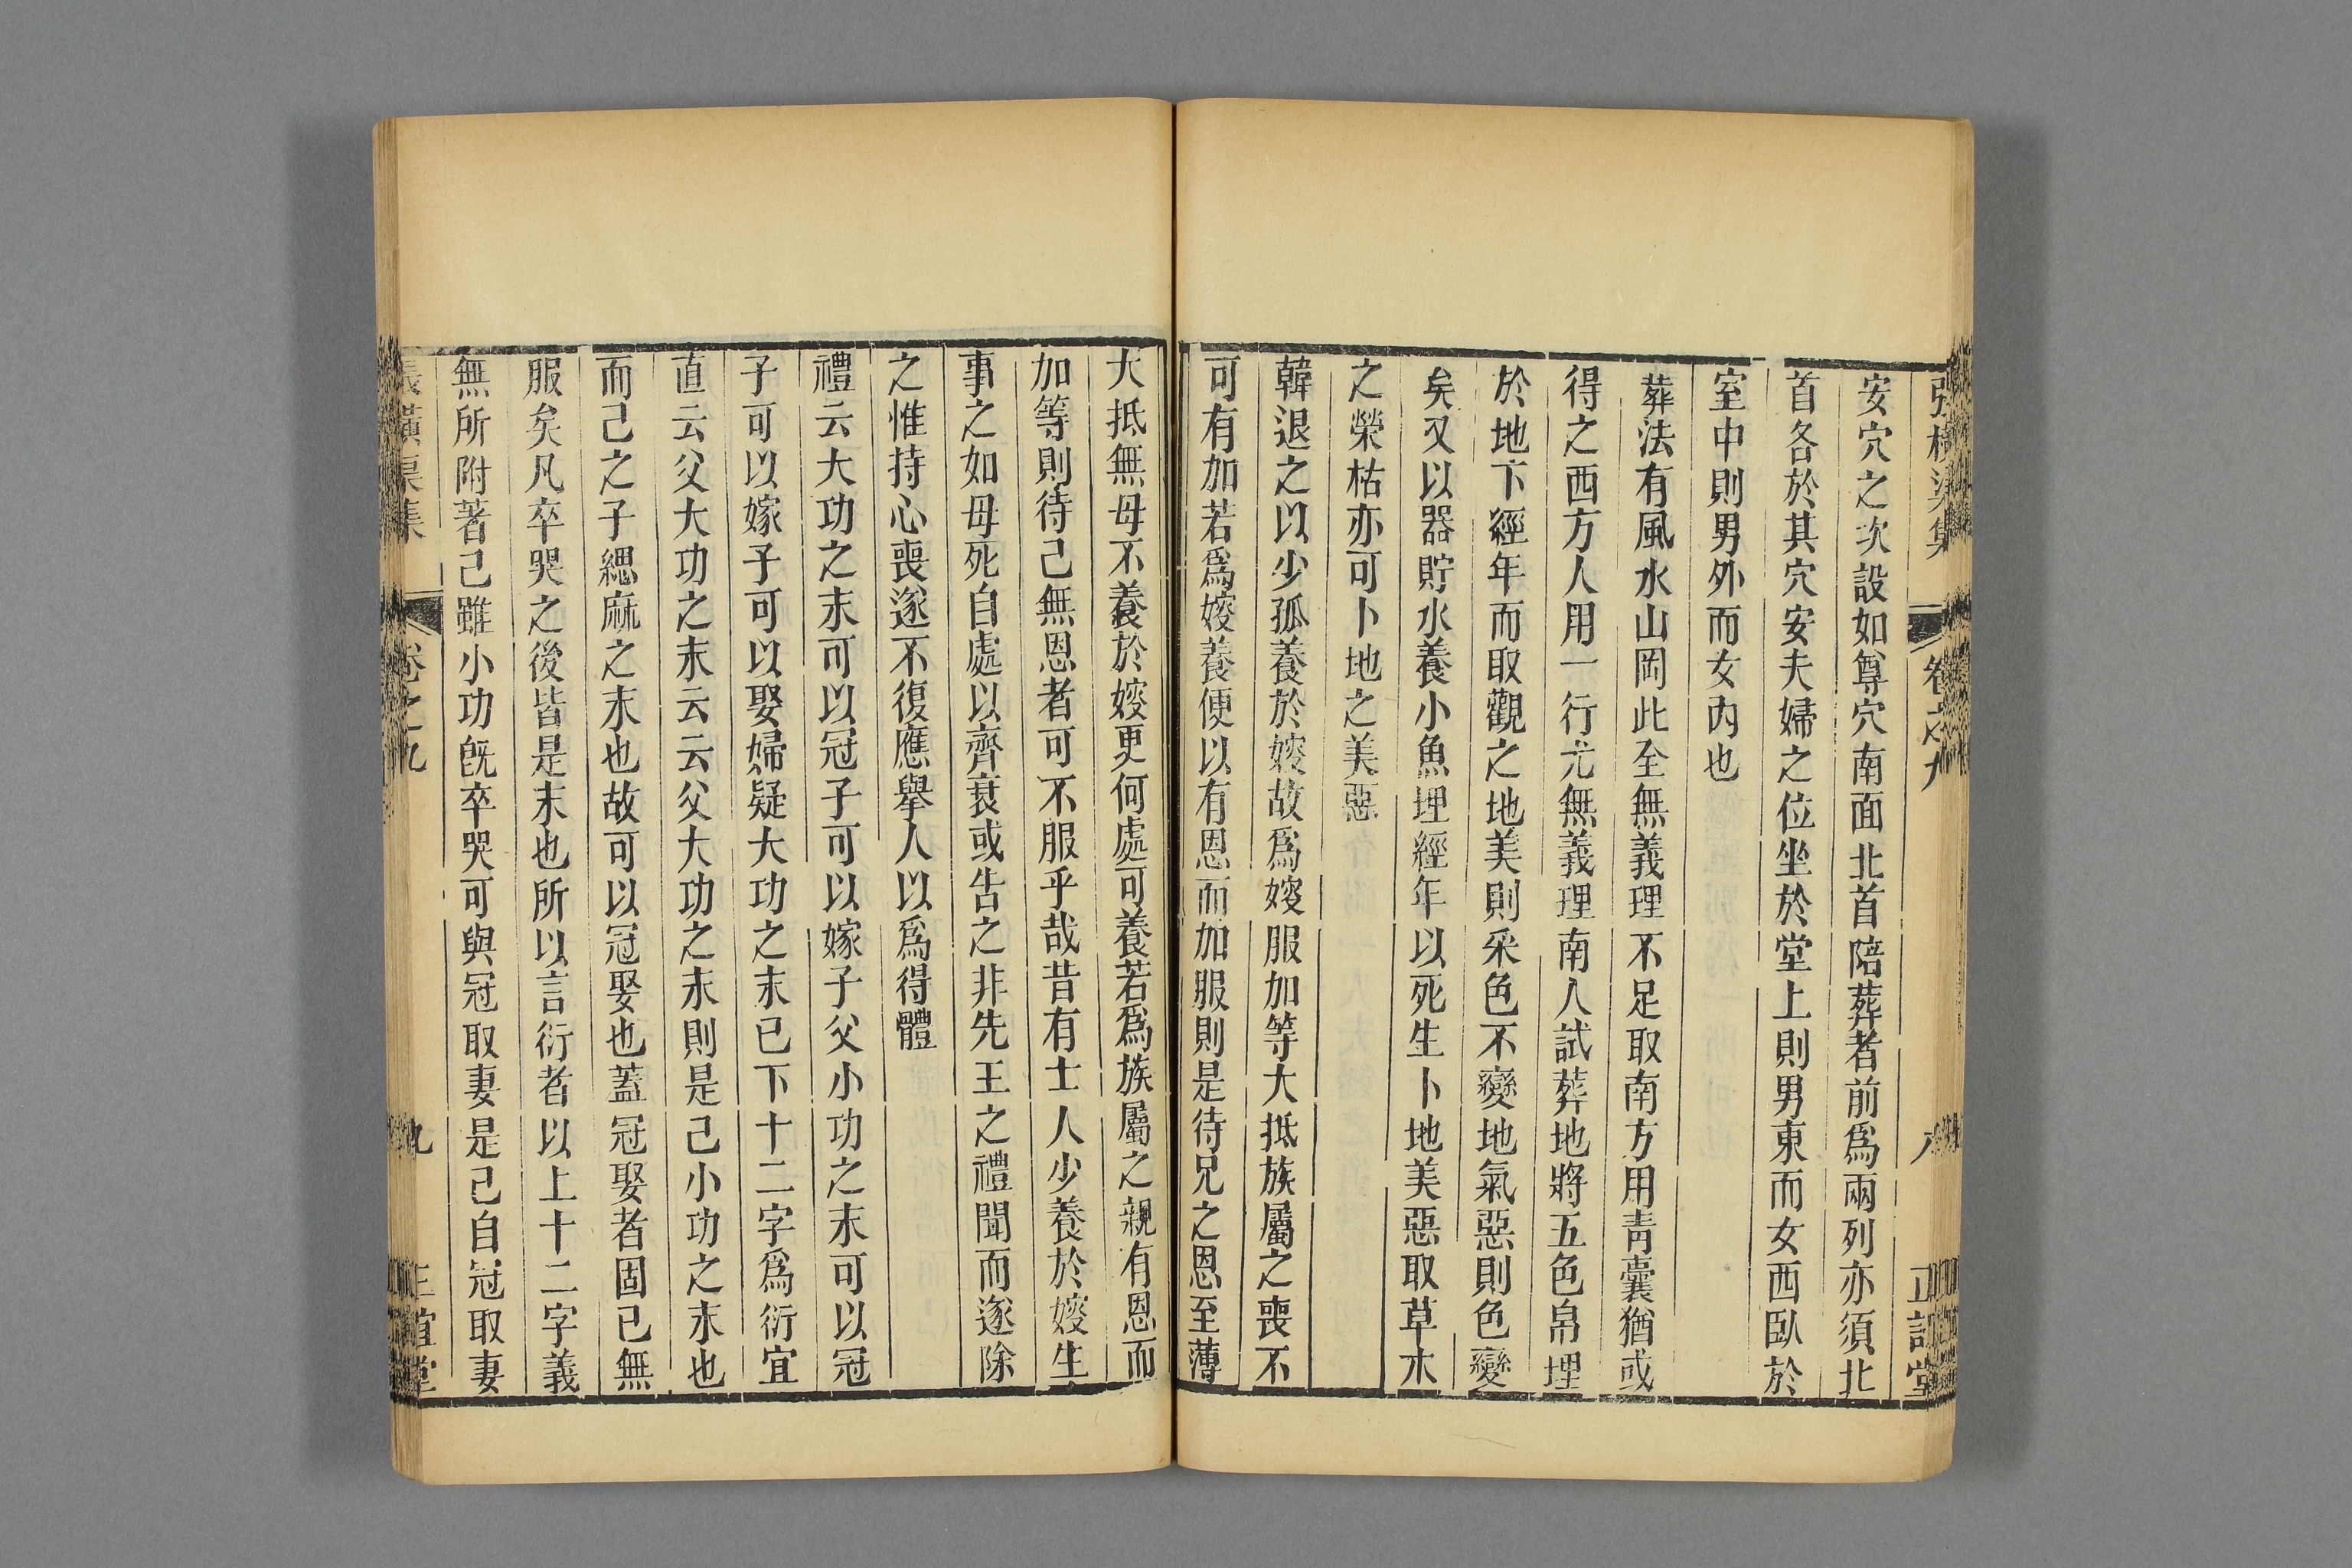 張橫渠集 卷之九 八 正誼堂
安穴之次設如尊穴南面北首陪葬者前爲兩列亦須北
首各於其穴安夫婦之位坐於堂上則男東而女西臥於
室中則男外而女內也
葬法有風水山岡此至無義理不足取南方用青囊猶或
得之西方人用一行尤無義理南人試葬地將五色帛埋
於地下經年而取觀之地美則采色不變地氣惡則色變
矣又以器貯水養小魚埋經年以死生卜地美惡取草木
之榮枯亦可卜地之美惡
韓退之以少孤養於嫂故爲嫂服加等大抵族屬之喪不
可有加若爲嫂養便以有恩而加服則是待兄之恩至薄
大抵無母不養於嫂更何處可養若爲族屬之親有恩而
加等則待己無恩者可不服乎哉昔有士人少養於嫂生
事之如母死自處以齊衰或告之非先王之禮聞而遂除
之惟持心喪遂不復應舉人以爲得體
禮云大功之末可以冠子可以嫁子父小功之末可以冠
子可以嫁子可以娶婦疑大功之末已下十二字爲衍宜
直云父大功之末云云父大功之末則是己小功之末也
而己之子緦麻之末也故可以冠娶也蓋冠娶者固已無
服矣凡卒哭之後皆是末也所以言衍者以上十二字義
無所附著己雖小功既卒哭可與冠取妻是己自冠取妻
張橫渠集 卷之九 九 正誼堂